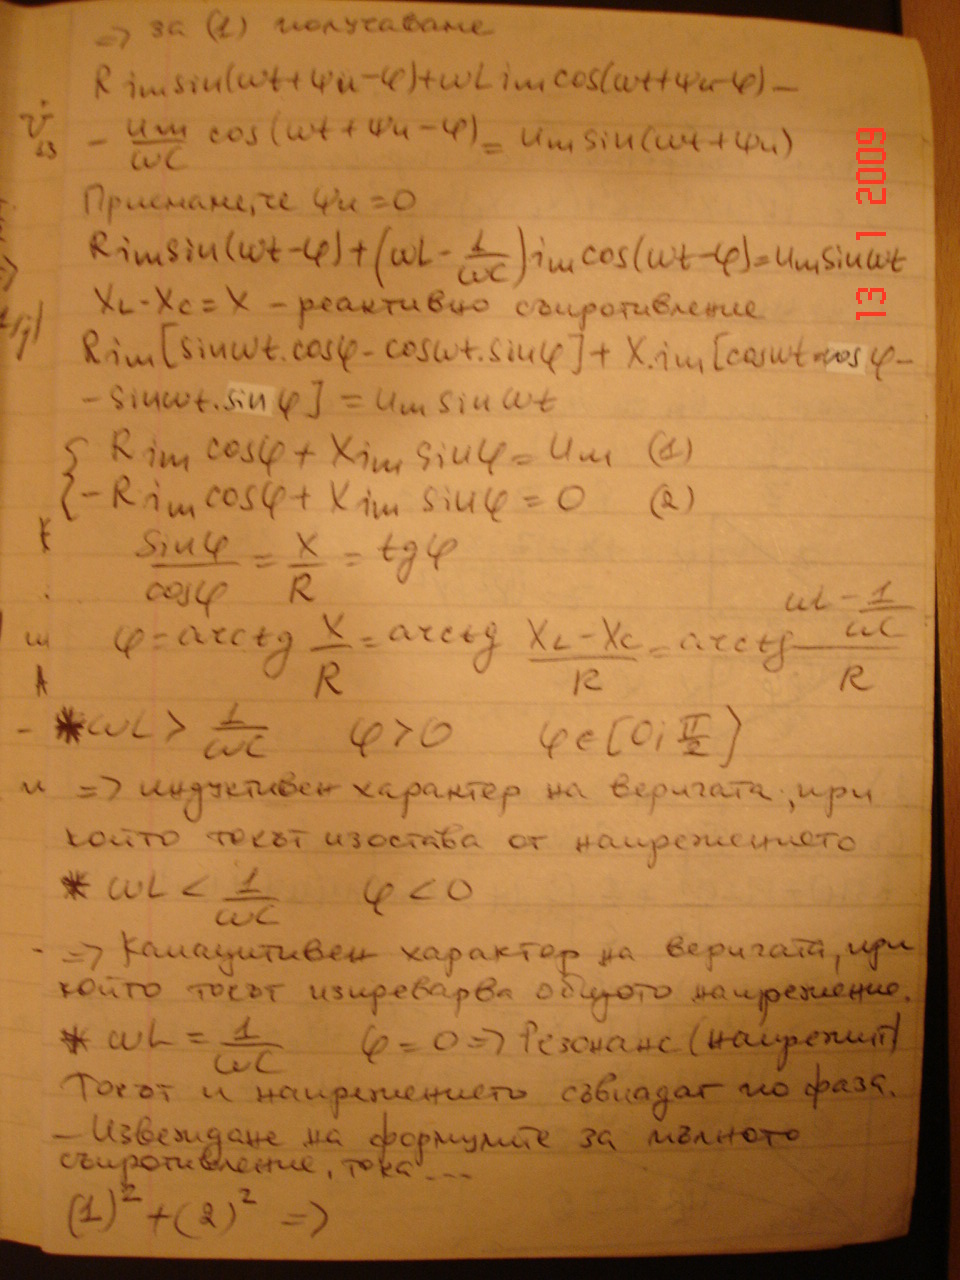 => за (1) получаваме
R im sin(ωt+ψu-φ)+ωL im cos(ωt+ψu-φ) -
- um/ωC cos(ωt+ψu-φ) = um sin(ωt+ψu)
Приемаме, че ψu = 0
R im sin(ωt-φ) + (ωL - 1/ωC) im cos(ωt-φ) = um sin ωt
XL - XC = X - реактивно съпротивление
R im [sin ωt.cosφ - cos ωt.sinφ] + X.im [cos ωt.cosφ -
- sin ωt.sinφ] = um sin ωt
{ R im cosφ + X im sinφ = um (1)
{ - R im cosφ + X im sinφ = 0 (2)
sinφ/cosφ = X/R = tgφ
φ = arctg X/R = arctg (XL - XC)/R = arctg (ωL - 1/ωC)/R
* ωL > 1/ωC φ > 0 φ ∈ [0; π/2]
=> индуктивен характер на веригата, при
който токът изостава от напрежението
* ωL < 1/ωC φ < 0
=> Капацитивен характер на веригата, при
който токът изпреварва общото напрежение.
* ωL = 1/ωC φ = 0 => Резонанс (напрежит)
Токът и напрежението съвпадат по фаза.
- Извеждане на формулите за пълното
съпротивление, тока...
(1)² + (2)² =>
13 1 2009